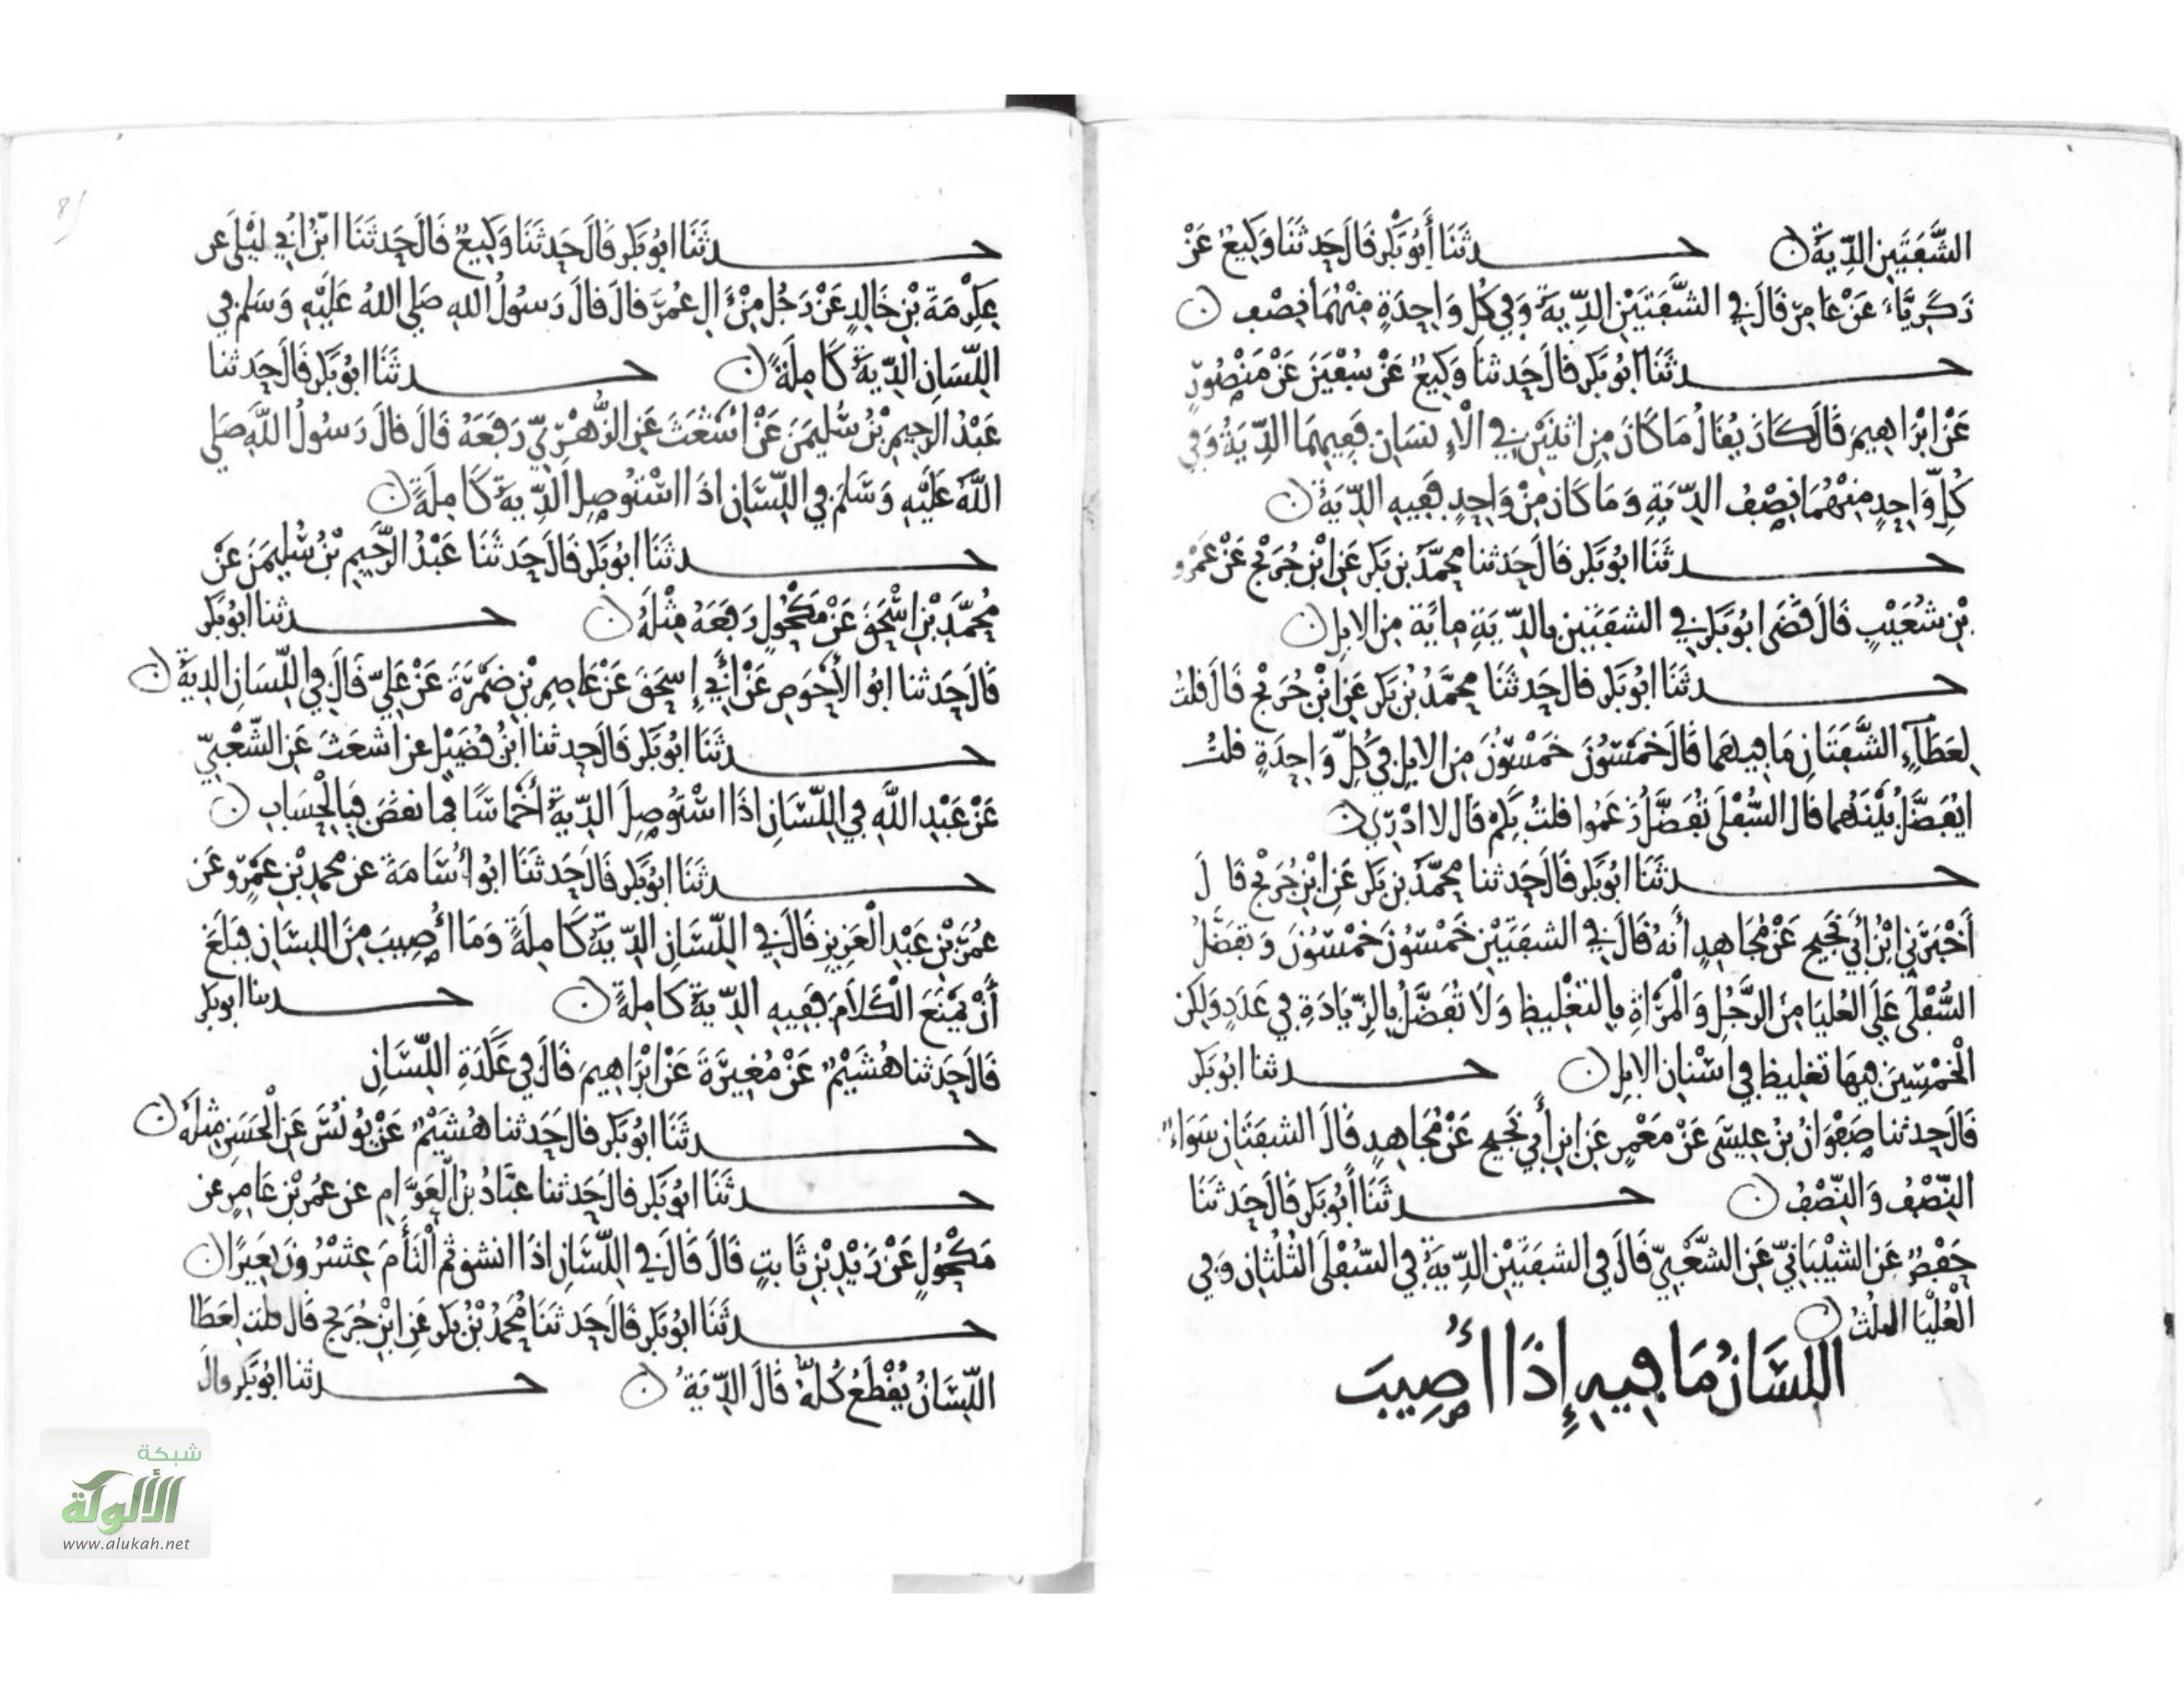 الشَّفَتَيْنِ الدِّيَةُ ۞ حــدثَنَا أَبُو بَكْرٍ قَالَ حَدثَنَا وَكِيعٌ عَنْ
زَكَرِيَّاءَ عَنْ عَامِرٍ قَالَ فِي الشَّفَتَيْنِ الدِّيَةُ وَفِي كُلِّ وَاحِدَةٍ مِنْهُمَا نِصْفٌ ۞
حــدثَنَا ابُو بَكْرٍ قالَ حَدثنَا وَكِيعٌ عَنْ سُفْيَنَ عَنْ مَنْصُورٍ
عَنْ ابْرَاهِيمَ قَالَ كَانَ يُقَالُ مَا كَانَ مِنِ اثْنَيْنِ فِي الْاِنسَانِ فَفِيهِمَا الدِّيَةُ وَفِي
كُلِّ وَاحِدٍ مِنْهُمَا نِصْفُ الدِّيَةِ وَمَا كَانَ مِنْ وَاحِدٍ فَفِيهِ الدِّيَةُ ۞
حــدثَنَا ابُو بَكْرٍ قَالَ حَدثنا محمَّدُ بْن بَكْرٍ عَنِ ابْنِ جُرَيْجٍ عَنْ عَمْرِو
بْنِ شُعَيْبٍ قَالَ قَضَى ابُو بَكْرٍ فِي الشفَتَيْنِ بِالدِّيَةِ مِايَةً مِنَ الابِلِ ۞
حــدثَنَا ابُو بَكْرٍ قالَ حَدثَنَا محَمَّدُ بْنُ بَكْرٍ عَنِ ابْنِ جُرَيْجٍ قَالَ قلتُ
لِعَطَآءٍ الشَّفَتَانِ مَا فِيهِمَا قَالَ خَمْسُونَ خَمْسُونَ مِنَ الابِلِ فِي كُلِّ وَاحِدَةٍ قلتُ
ايُفَضَّلُ بَيْنَهُمَا قالَ السُّفْلَى تُفَضَّلُ زَعَمُوا قلتُ بِكَمْ قَالَ لا ادْرِي ۞
حــدثَنَا ابُو بَكْرٍ قَالَ حَدثنا محمَّدُ بْن بَكْرٍ عَنِ ابْنِ جُرَيْجٍ قَالَ
أَخْبَرَنِي ابْنُ أَبِي نَجِيحٍ عَنْ مُجَاهِدٍ أَنهُ قَالَ فِي الشفَتَيْنِ خَمْسُونَ خَمْسُونَ وَتفَضَّلُ
السُّفْلَى عَلَى العُليَا مِنَ الرَّجُلِ وَالْمَرْأةِ بِالتغْلِيظِ وَلَا تُفَضَّلُ بِالزِّيَادَةِ فِي عَدَدٍ وَلكِن
الْخَمْسِينَ فِيهَا تغلِيظ فِي اسْنانِ الابِلِ ۞ حــدثنا ابُو بَكْر
قَالَ حَدثنا صَفْوَانُ بْنُ عِيسَى عَنْ مَعْمَرٍ عَنِ ابْنِ أَبِي نَجِيحٍ عَنْ مُجَاهِدٍ قَالَ الشفَتَانِ سَوَاءٌ
النِّصْفُ وَالنِّصْفُ ۞ حــدثَنَا أَبُو بَكْرٍ قَالَ حَدثَنَا
حَفْصٌ عَنِ الشيْبَانِيِّ عَنِ الشَّعْبِيِّ قَالَ فِي الشفَتَيْنِ الدِّيَةُ فِي السُّفْلَى الثُلُثانِ وَفِي
الْعُلْيَا الثلُثُ ۞
اللِّسَانُ مَا فِيهِ إِذَا أُصِيبَ
حــدثَنَا ابُو بَكْرٍ قَالَ حَدثَنَا وَكِيعٌ قَالَ حَدثَنَا ابْنُ أَبِي لَيْلَى عن
عِكْرِمَةَ بْنِ خَالِدٍ عَنْ رَجُلٍ مِنْ آلِ عُمَرَ قالَ قالَ رَسُولُ اللهِ صَلى اللهُ عَلَيْهِ وَسَلم فِي
اللِّسَانِ الدِّيَةُ كَامِلَةً ۞ حــدثَنَا ابُو بَكْرٍ قَالَ حَدثنا
عَبْدُ الرَّحِيمِ بْنُ سُلَيمَنَ عَنْ اشْعَثَ عَنِ الزُّهْرِيِّ رَفَعَهُ قَالَ قالَ رَسُولُ اللَّهِ صَلى
اللَّهُ عَلَيْهِ وَسَلمَ فِي اللِّسَانِ اذَا اسْتُوصِلَ الدِّيَةُ كَامِلَةً ۞
حــدثَنَا ابُو بَكْرٍ قَالَ حَدثَنَا عَبْدُ الرَّحِيمِ بْنُ سُلَيمَنَ عَنْ
مُحمَّدِ بْنِ اسْحَقَ عَنْ مَكْحُولٍ رَفَعَهُ مِثْلَهُ ۞ حــدثنا ابُو بَكْرٍ
قَالَ حَدثنا ابُو الأَحْوَصِ عَنْ أَبِي إِسحَقَ عَنْ عَاصِمِ بْنِ ضَمْرَةَ عَنْ عَلِيٍّ قَالَ فِي اللِّسَانِ الدِيَةُ ۞
حــدثَنَا ابُو بَكْرٍ قَالَ حدثنا ابْنُ فُضَيْلٍ عن اشعَثَ عَنِ الشَّعْبِيِّ
عَنْ عَبْدِ اللَّهِ فِي اللِّسَانِ اذَا اسْتُوصِلَ الدِّيَةُ أَخْمَاسًا فما نقَصَ فَبِالْحِسَابِ ۞
حــدثَنَا ابُو بَكْرٍ قَالَ حَدثَنَا ابُو أُسَامَةَ عن محمدِ بْنِ عَمْرٍو عَن
عُمَرَ بْنِ عَبْدِ الْعَزِيزِ قَالَ فِي اللِّسَانِ الدِّيَةُ كَامِلَةً وَمَا أُصِيبَ مِنَ اللِّسَانِ فبَلَغَ
أَنْ يَمْنَعَ الْكَلَامَ فَفِيهِ الدِّيَةُ كَامِلَةً ۞ حــدثنا ابو بكر
قَالَ حَدثنا هُشَيْمٌ عَنْ مُغِيرَةَ عَنْ ابْرَاهِيمَ قَالَ فِي عَكَدَةِ اللِّسَانِ
حــدثَنَا ابُو بَكْرٍ قالَ حَدثنا هُشَيْمٌ عَنْ يُونُسَ عَنِ الْحَسَنِ مِثلَهُ ۞
حــدثَنَا ابُو بَكْرٍ قالَ حَدثنا عبَّادُ بْنُ الْعَوَّامِ عن عُمَرَ بْنِ عَامِرٍ عن
مَكْحُولٍ عَنْ زَيْدِ بْنِ ثَابِتٍ قَالَ قَالَ فِي اللِّسَانِ اذَا انشق ثم الْتَأَمَ عِشْرُونَ بَعِيرًا ۞
حــدثَنَا ابُو بَكْرٍ قَالَ حَدثَنَا مُحَمدُ بْنُ بَكْرٍ عَنِ ابْنِ جُرَيْجٍ قَالَ قلت لِعَطَا
اللِّسَانُ يُقْطَعُ كُلُّهُ قَالَ الدِّيَةُ ۞ حــدثنا ابُو بَكْرٍ قالَ
شبكة
الألوكة
www.alukah.net